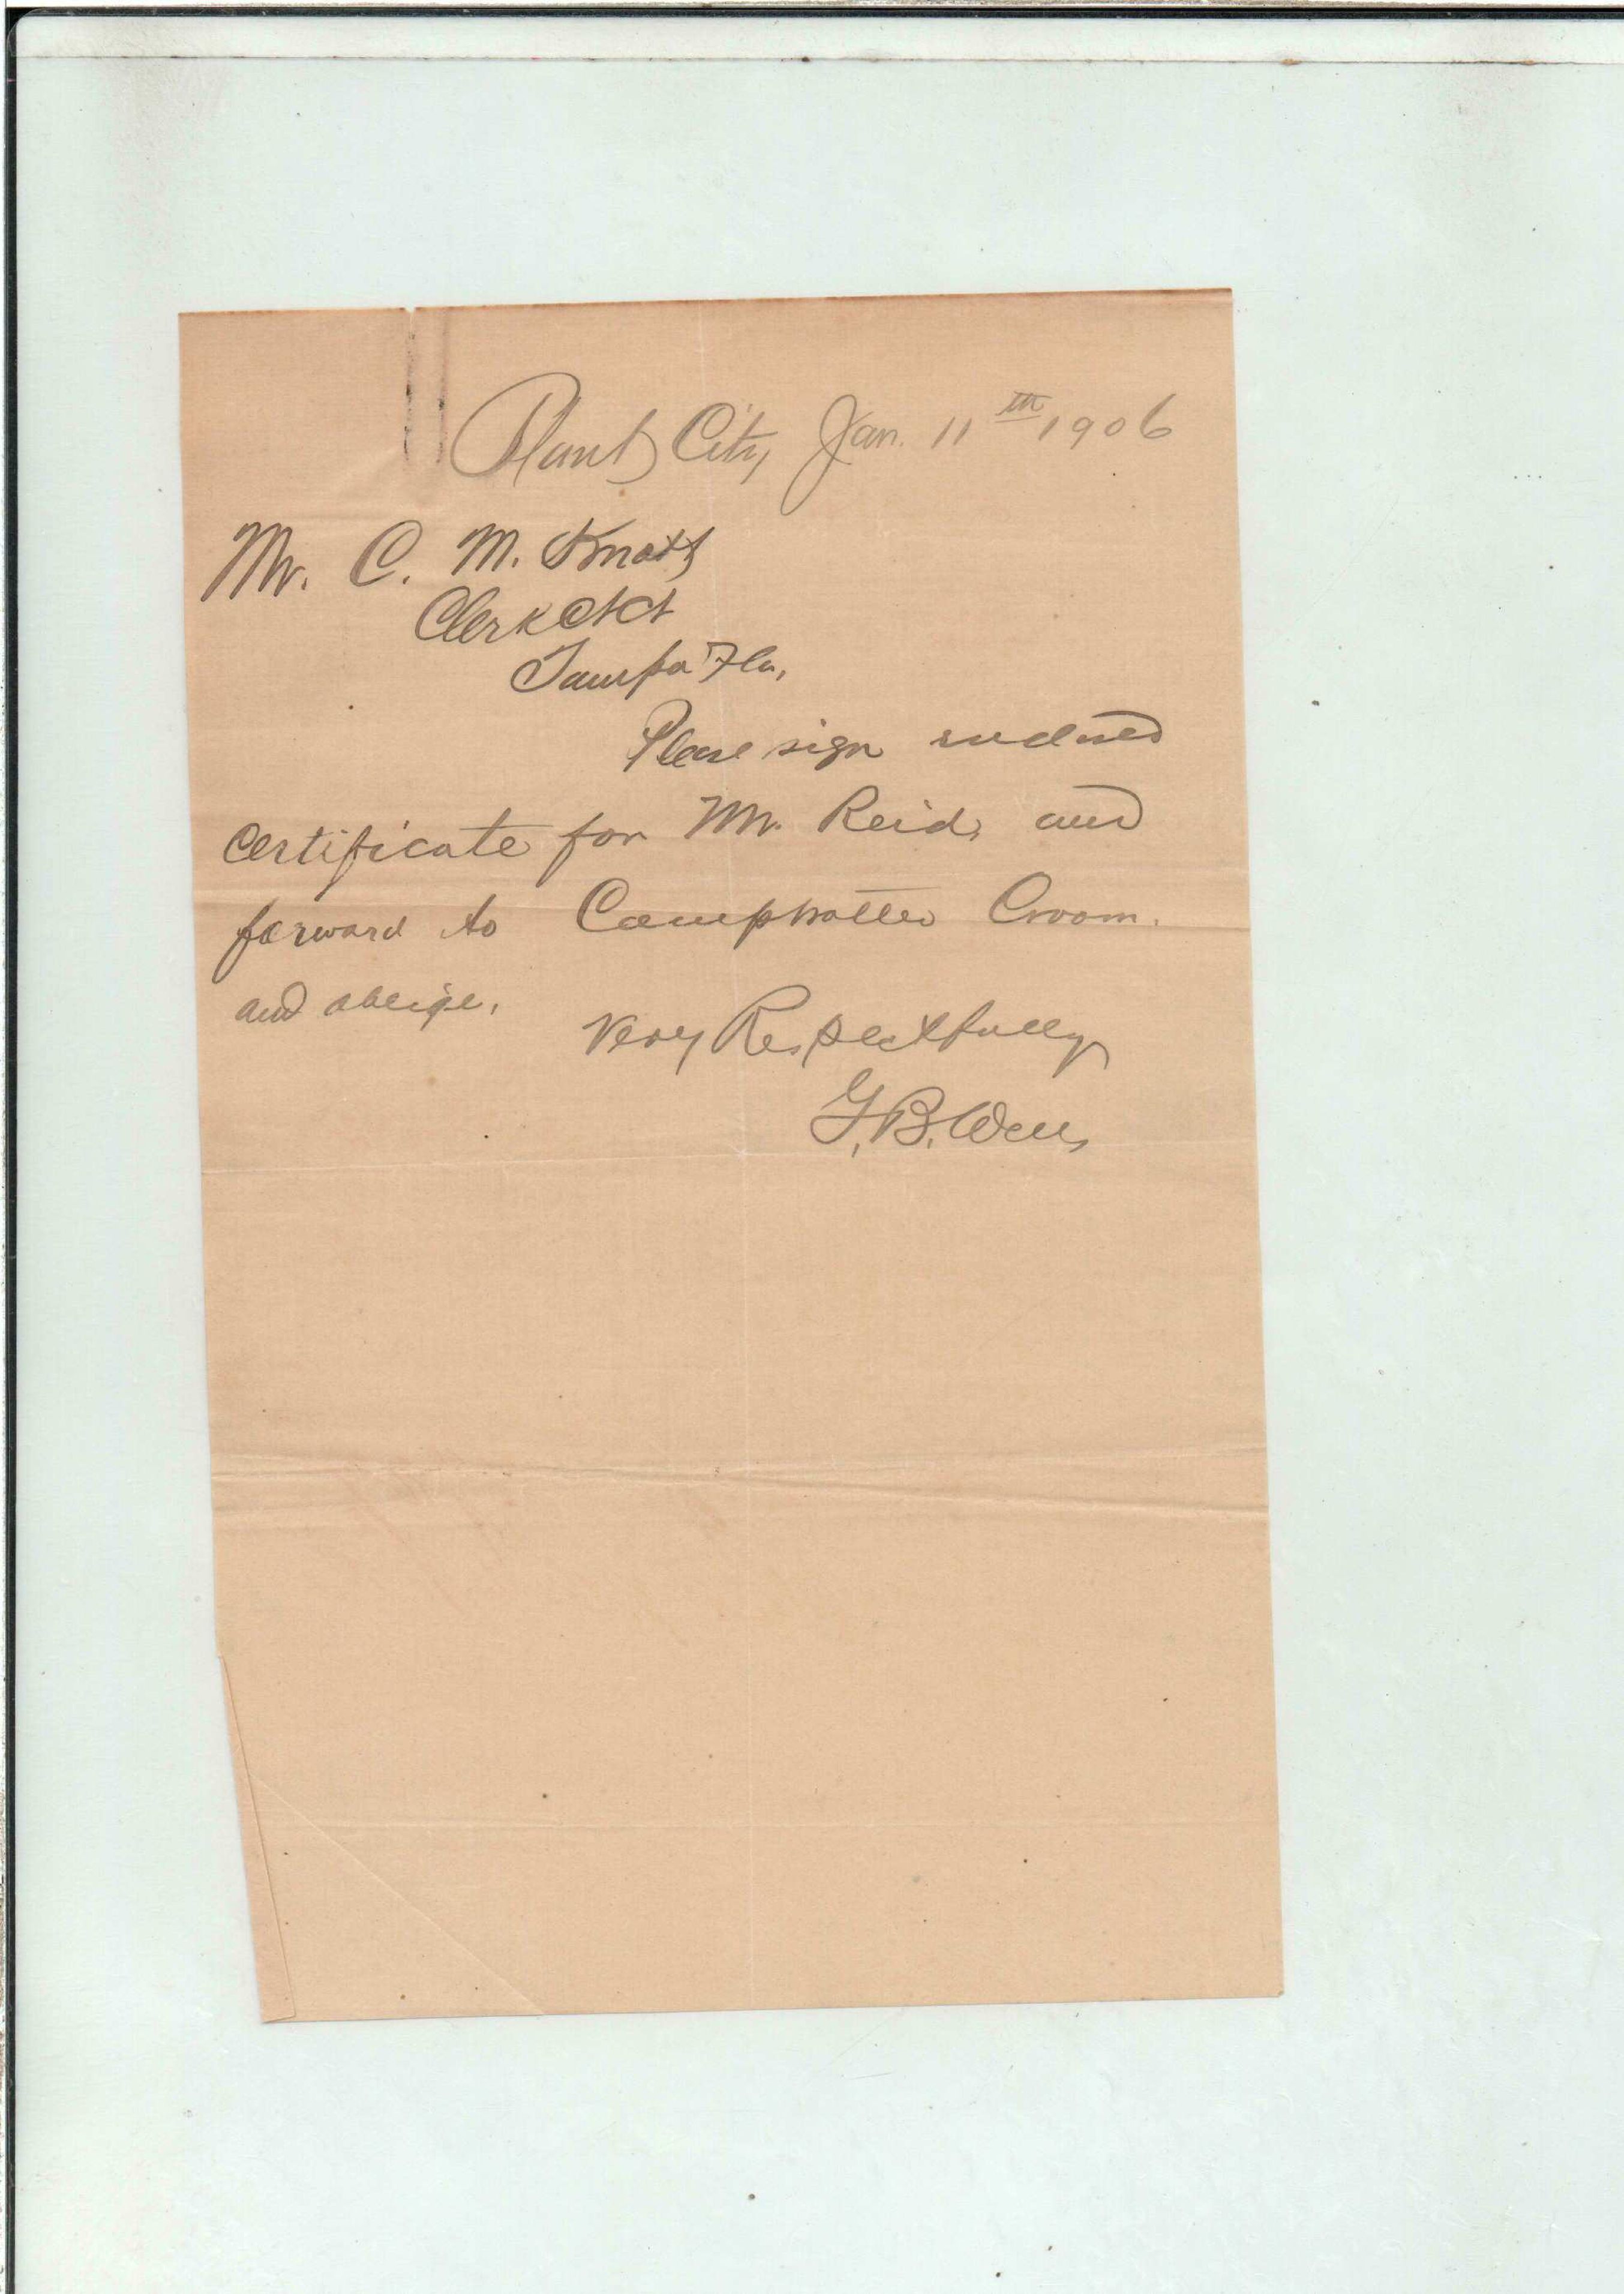 Plant City, Jan. 11th 1906
Mr. C. M. Knott,
Clerk Ct Ct
Tampa Fla,
Please sign enclosed
certificate for Mr. Reid, and
forward to Comptroller Croom.
and oblige.
Very Respectfully
G. B. Wells